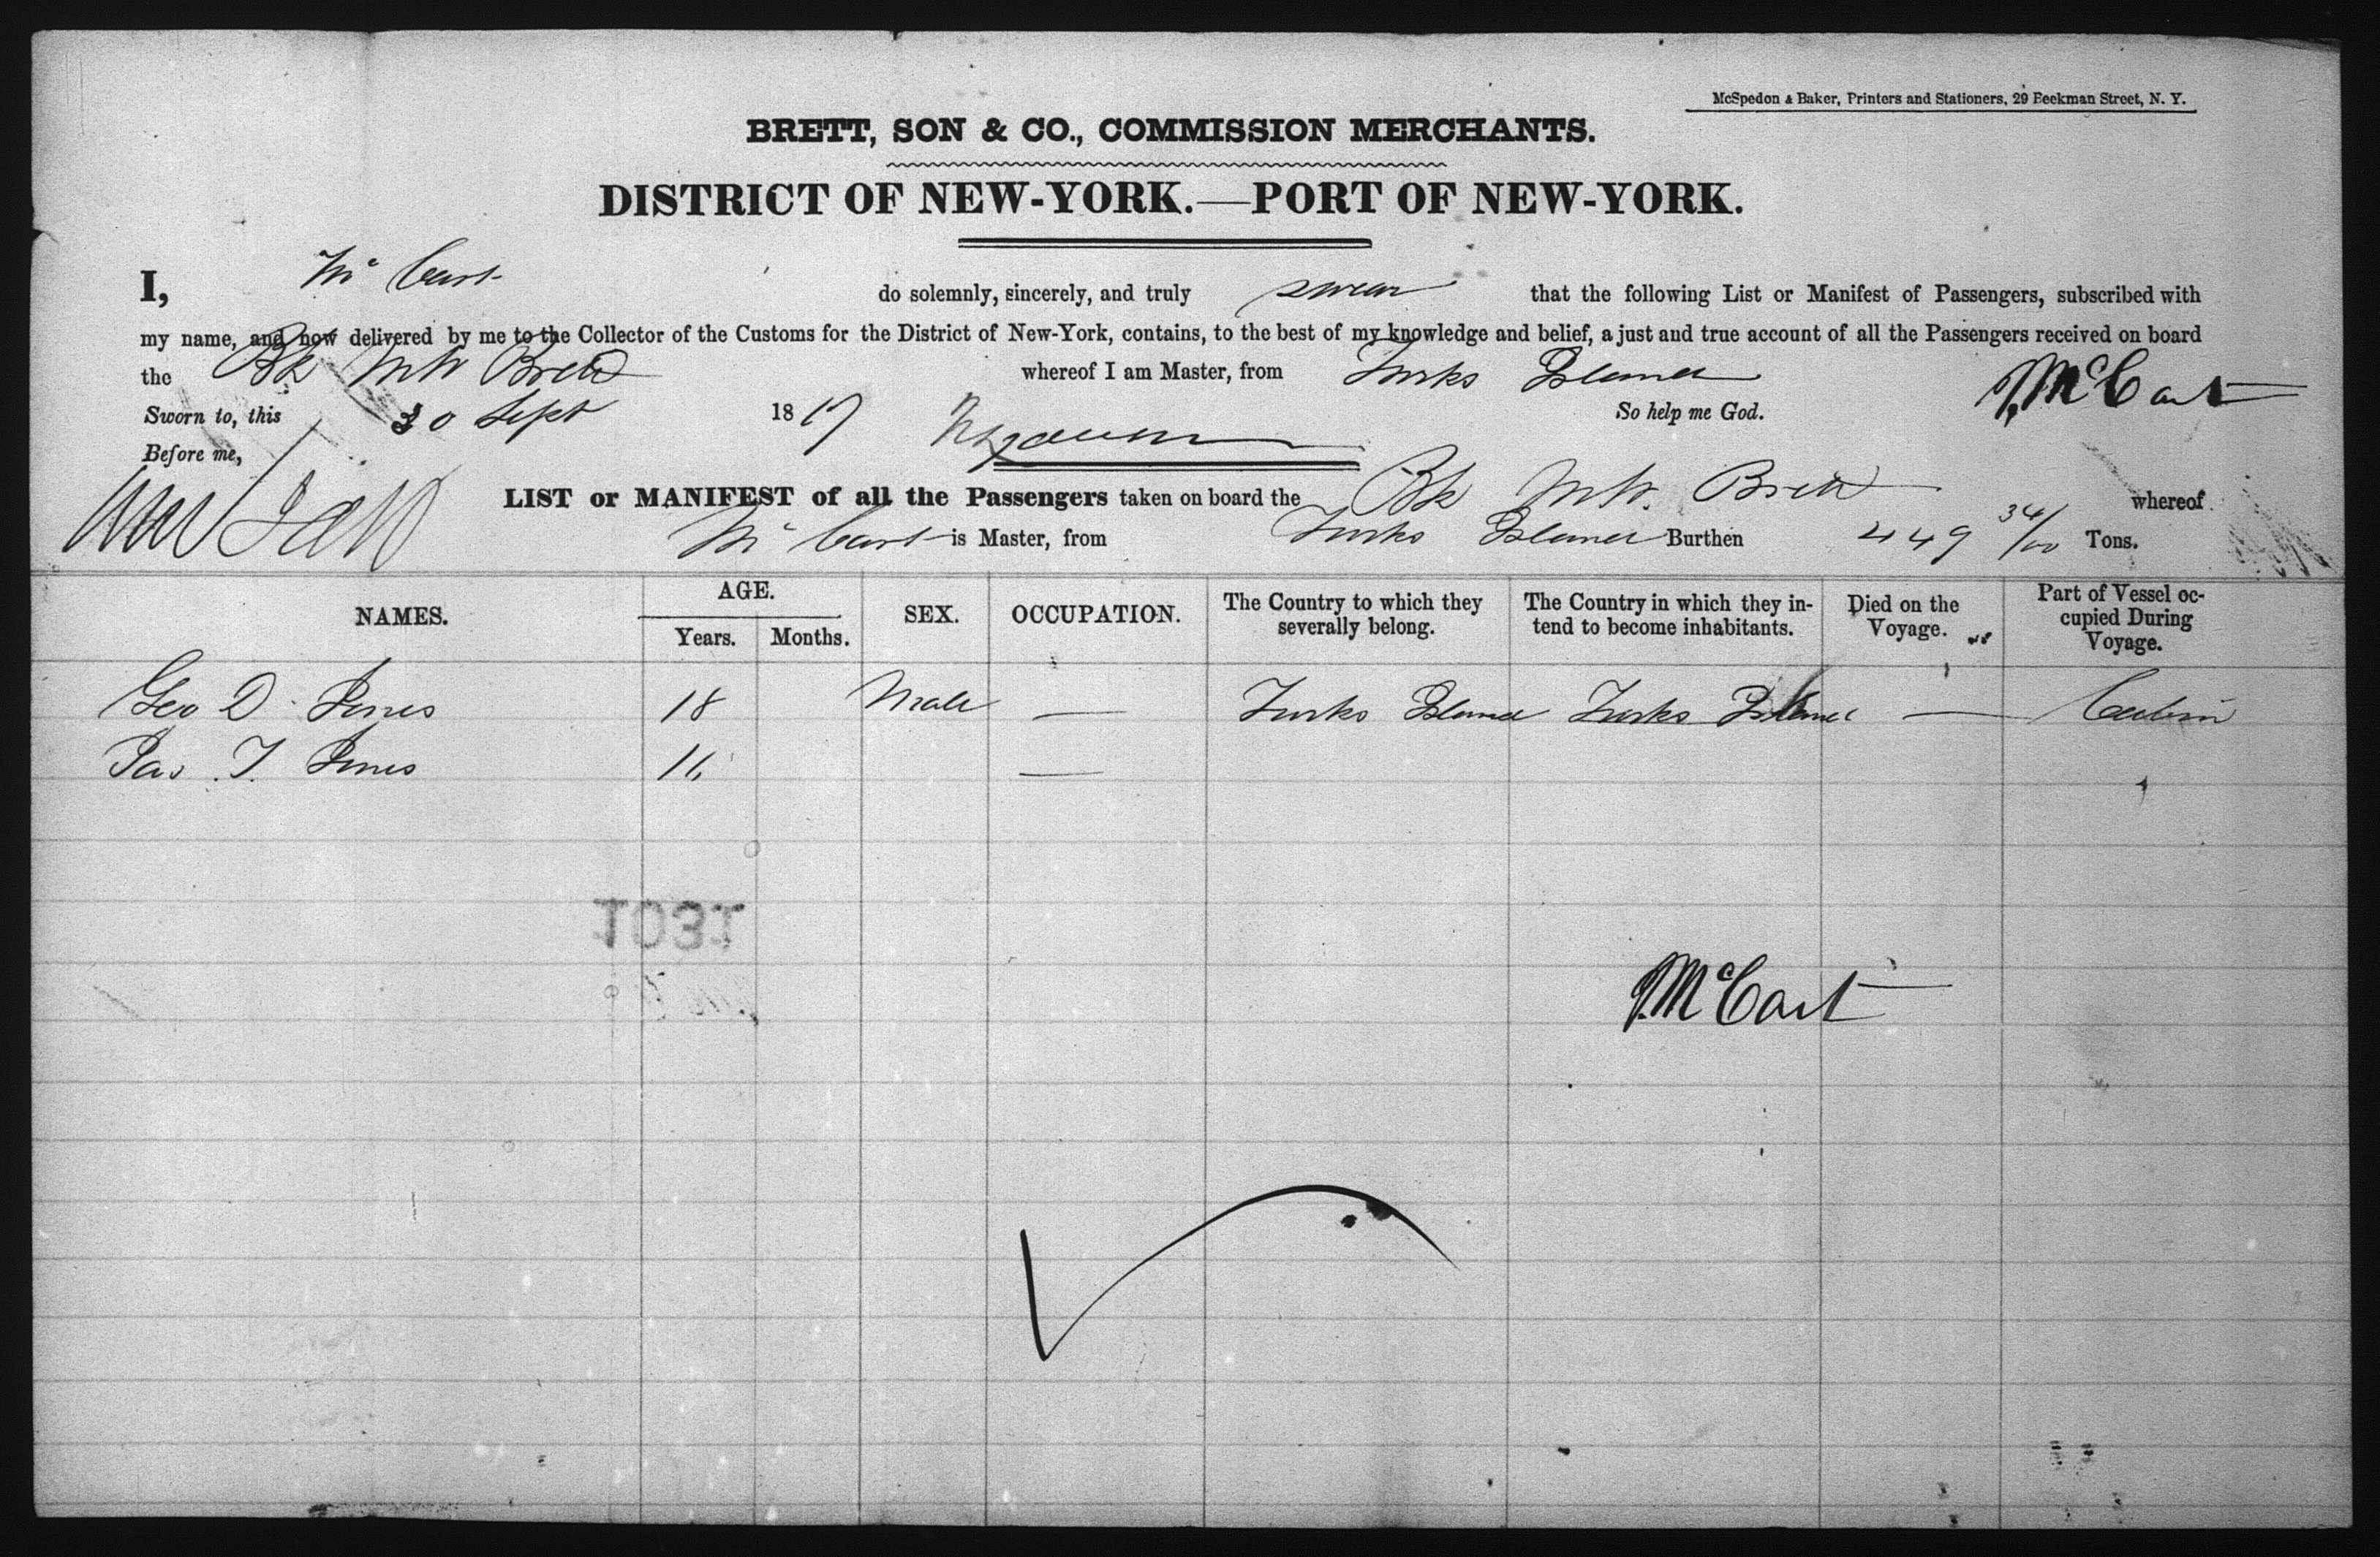 McSpedon & Baker, Printers and Stationers, 29 Beekman Street, N. Y.
BRETT, SON & CO., COMMISSION MERCHANTS.
DISTRICT OF NEW-YORK.—PORT OF NEW-YORK.
I, Mc Cart do solemnly, sincerely, and truly swear that the following List or Manifest of Passengers, subscribed with
my name, and now delivered by me to the Collector of the Customs for the District of New-York, contains, to the best of my knowledge and belief, a just and true account of all the Passengers received on board
the Bk M W Brett whereof I am Master, from Turks Island
J, McCart
Sworn to, this 30 Sept 18 So help me God.
Before me,
LIST or MANIFEST of all the Passengers taken on board the Bk M W. Brett whereof
Mc Cart is Master, from Turks Island Burthen 449 34/100 Tons.
NAMES. AGE. Years. Months. SEX. OCCUPATION. The Country to which they severally belong. The Country in which they intend to become inhabitants. Died on the Voyage. Part of Vessel occupied During Voyage.
Geo D. Jones 18 Male — Turks Island Turks Island — Cabin
Jas. T. Jones —
1031
J. McCart